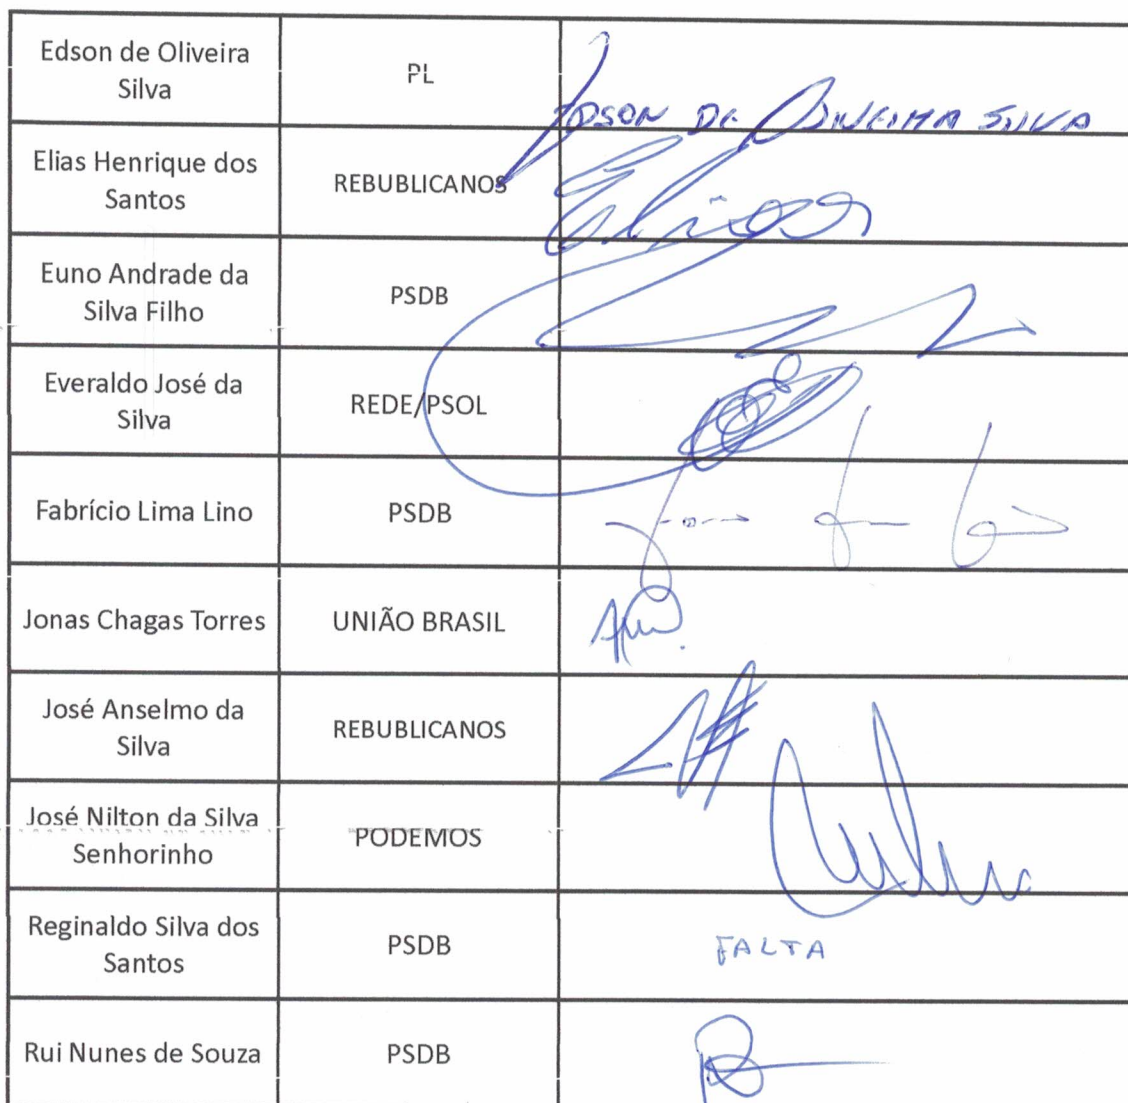 Edson de Oliveira
Silva
PL
EDSON DE OLIVEIRA SILVA
Elias Henrique dos
Santos
REBUBLICANOS
Elias
Euno Andrade da
Silva Filho
PSDB
Everaldo José da
Silva
REDE/PSOL
Fabrício Lima Lino
PSDB
Jonas Chagas Torres
UNIÃO BRASIL
José Anselmo da
Silva
REBUBLICANOS
José Nilton da Silva
Senhorinho
PODEMOS
Reginaldo Silva dos
Santos
PSDB
FALTA
Rui Nunes de Souza
PSDB